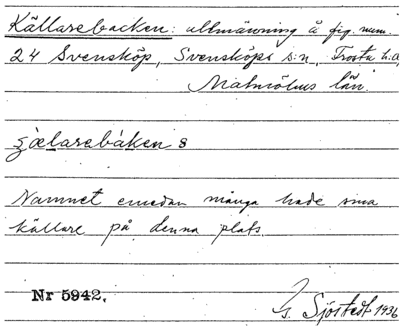 Källarebacken: allmänning å fig. num.
24 Svensköp, Svensköps s:n, Frosta h:d,
Malmöhus län.
Namnet emedan många hade sina
källare på denna plats.
Nr 5942.
G. Sjöstedt 1936